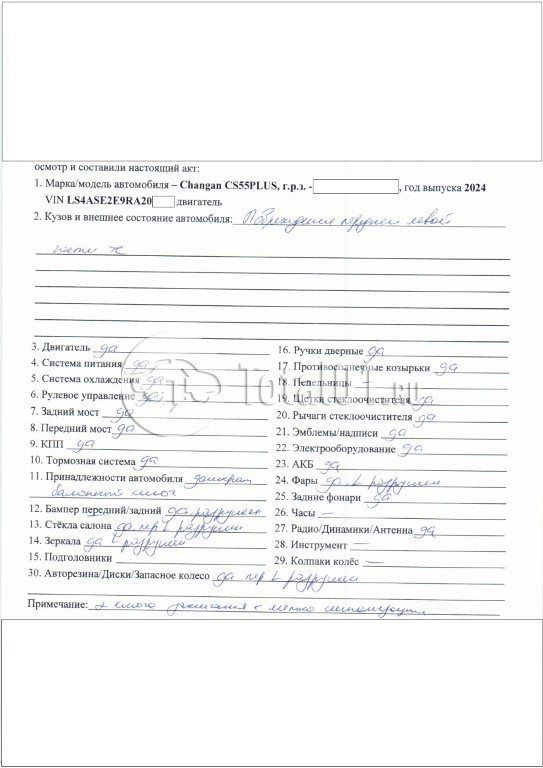 осмотр и составили настоящий акт:
1. Марка/модель автомобиля – Changan CS55PLUS, г.р.з. - , год выпуска 2024
VIN LS4ASE2E9RA20 двигатель
2. Кузов и внешнее состояние автомобиля: Повреждения передней левой
части ТС
3. Двигатель да
4. Система питания да
5. Система охлаждения да
6. Рулевое управление да
7. Задний мост да
8. Передний мост да
9. КПП да
10. Тормозная система да
11. Принадлежности автомобиля домкрат
балонный ключ
12. Бампер передний/задний да разрушен
13. Стёкла салона да пер L разрушен
14. Зеркала да L разрушен
15. Подголовники
16. Ручки дверные да
17. Противосолнечные козырьки да
18. Пепельницы —
19. Щетки стеклоочистителя да
20. Рычаги стеклоочистителя да
21. Эмблемы/надписи да
22. Электрооборудование да
23. АКБ да
24. Фары да L разрушен
25. Задние фонари да
26. Часы —
27. Радио/Динамики/Антенна да
28. Инструмент —
29. Колпаки колёс —
30. Авторезина/Диски/Запасное колесо да пер L разрушен
Примечание: 2 ключа зажигания с меткой сигнализации
Total01.ru